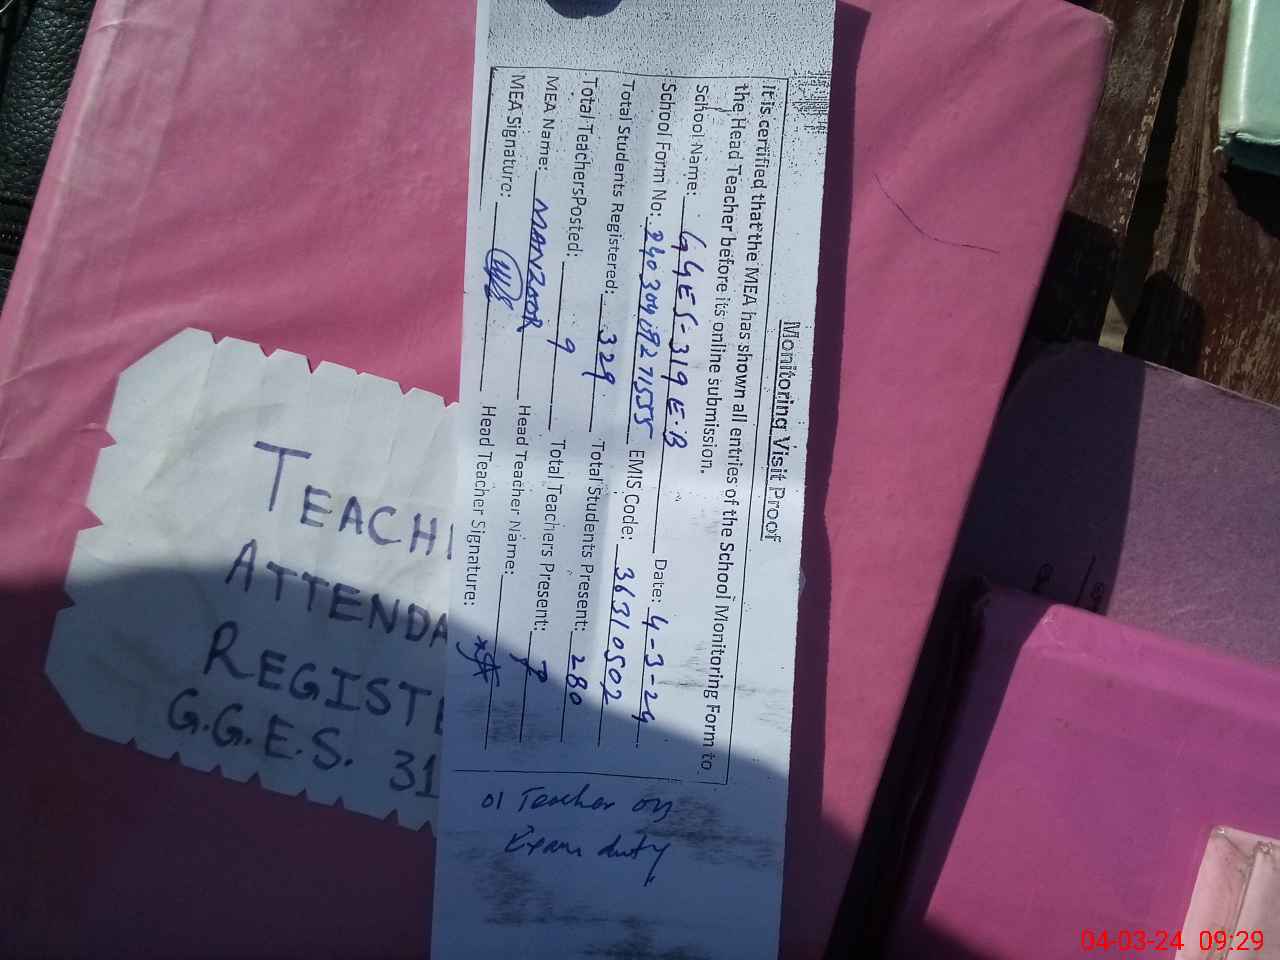 Monitoring Visit Proof
It is certified that the MEA has shown all entries of the School Monitoring Form to
the Head Teacher before its online submission.
School Name: GGES-319 E.B Date: 4-3-24
School Form No: EMIS Code: 36310502
Total Students Registered: 329 Total Students Present: 280
Total TeachersPosted: 9 Total Teachers Present: 7
MEA Name: MANZOOR Head Teacher Name:
MEA Signature: Head Teacher Signature:
01 Teacher on
Exam duty
TEACH
ATTENDA
REGISTE
G.G.E.S. 31
04-03-24 09:29